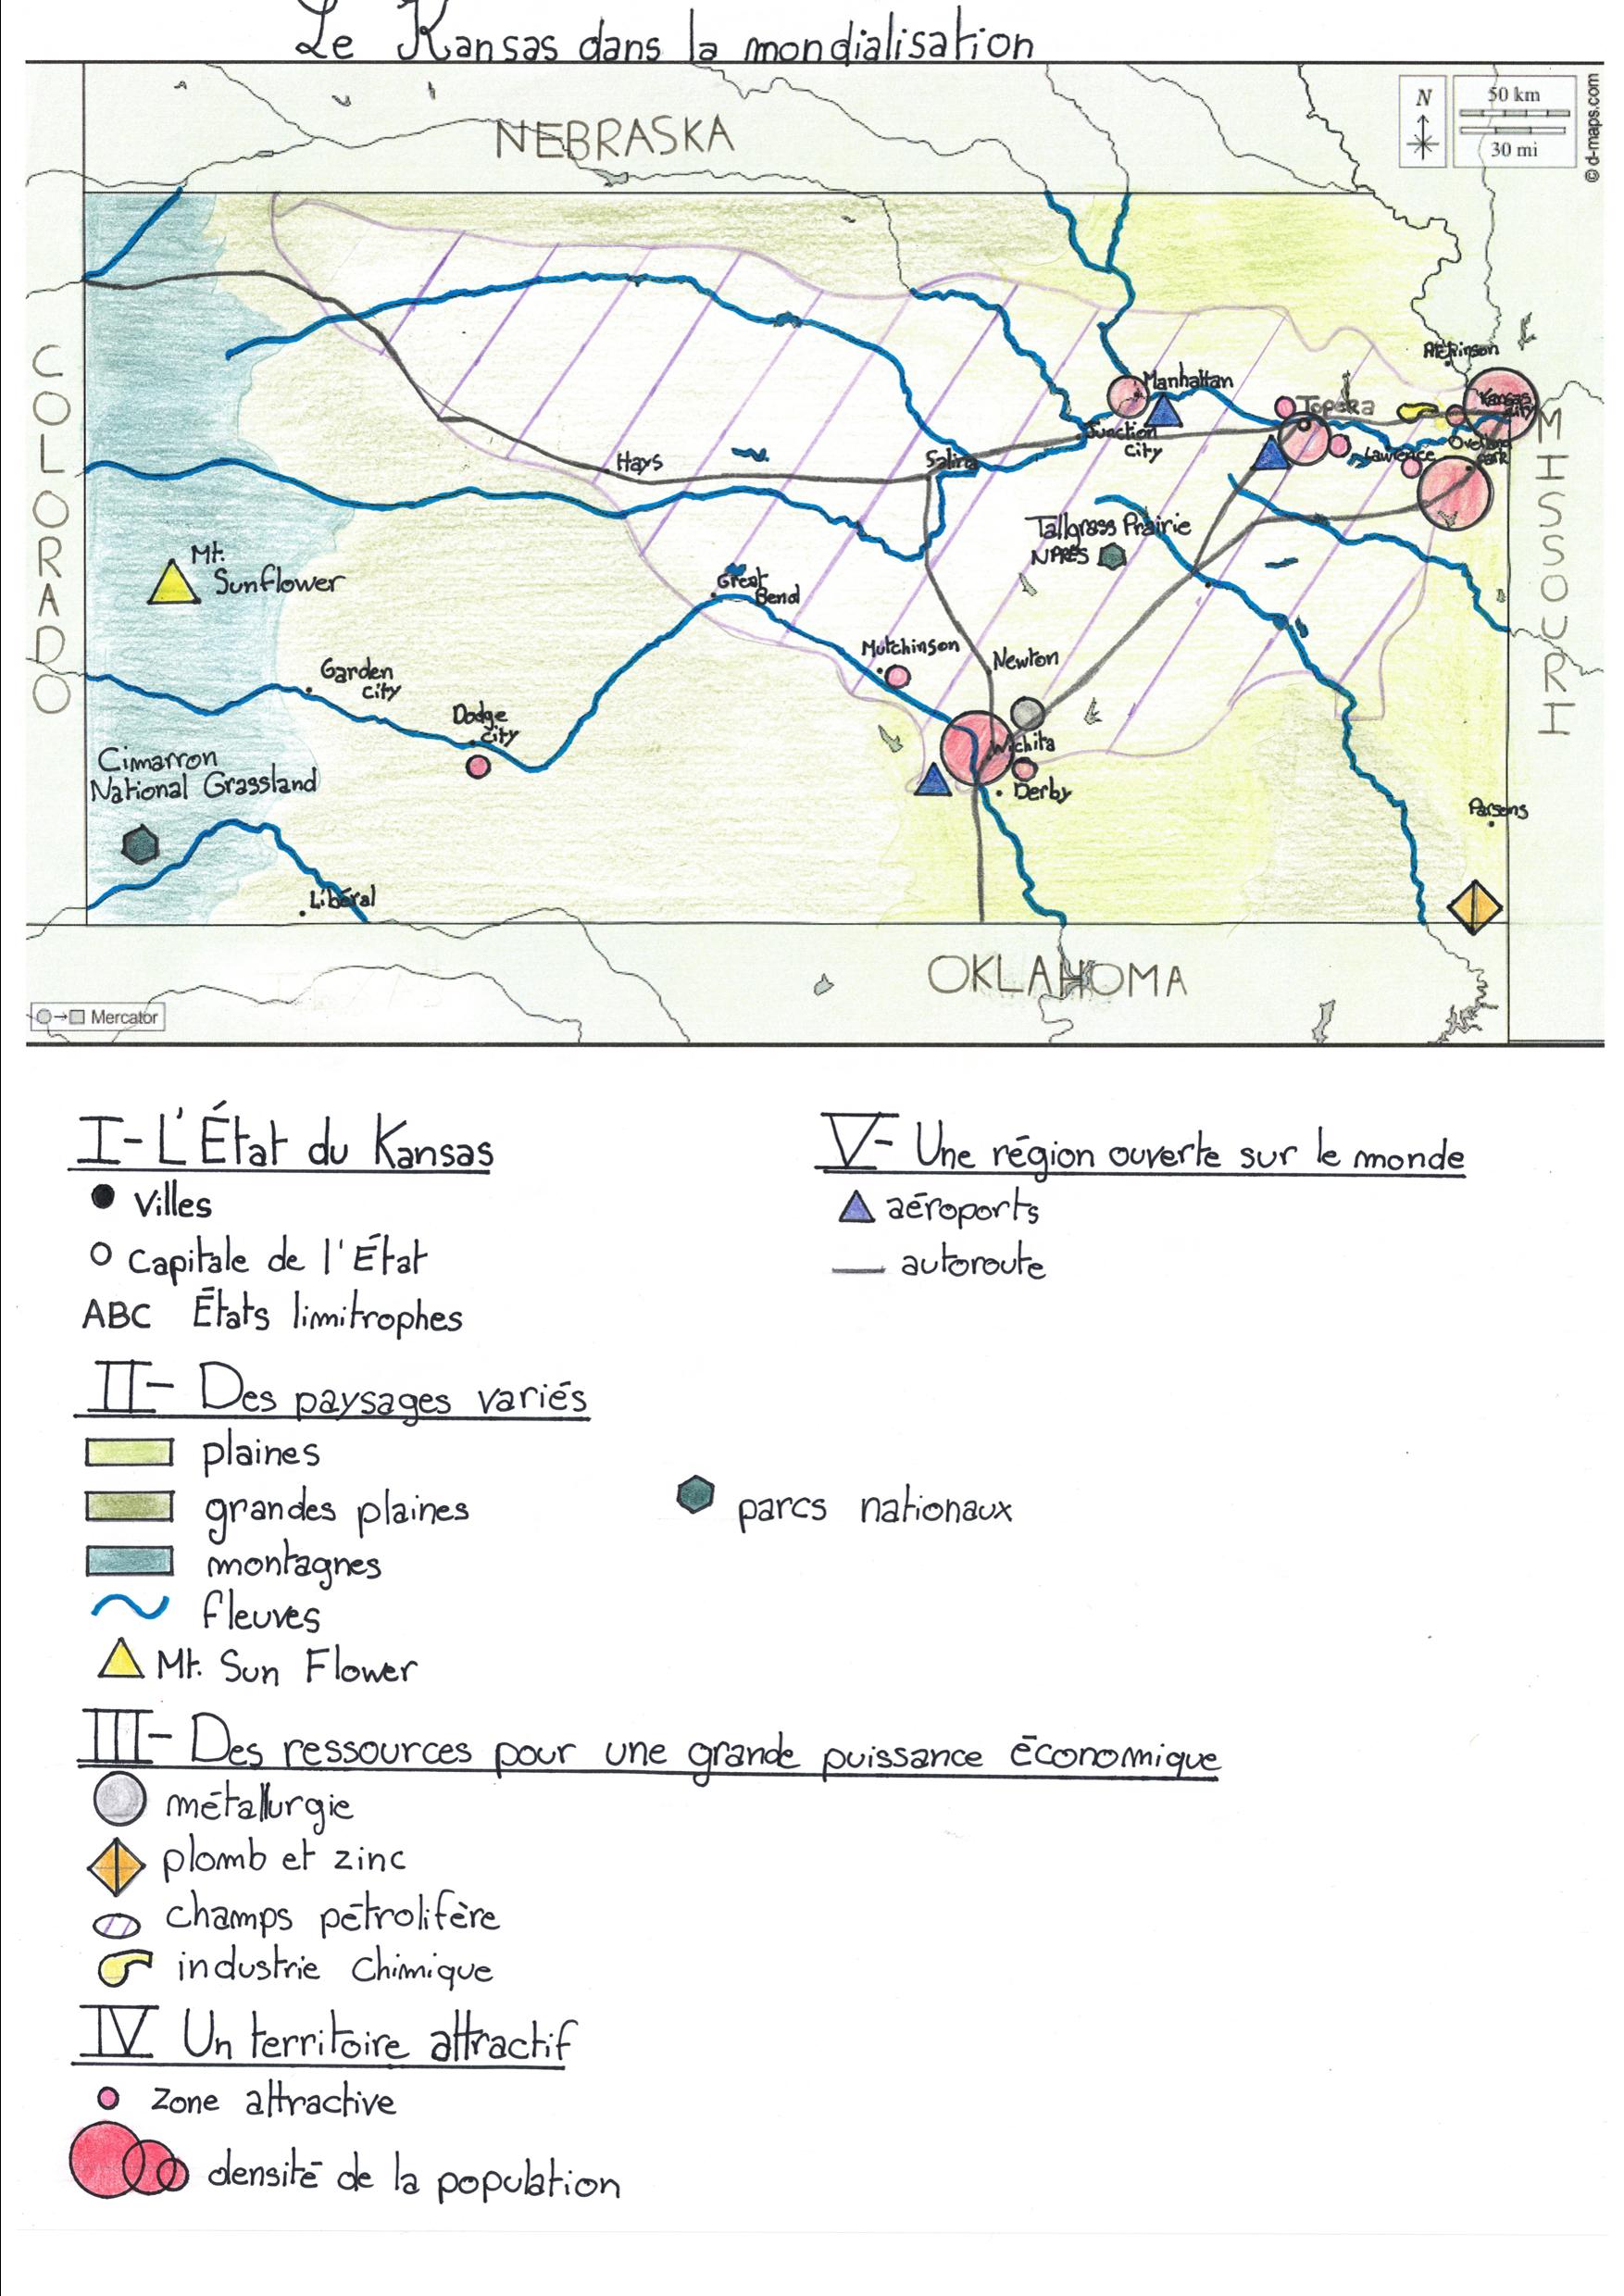 Le Kansas dans la mondialisation
NEBRASKA
N
50 km
30 mi
© d-maps.com
COLORADO
MISSOURI
Atkinson
Manhattan
Kansas
City
Topeka
Junction
City
Overland
Park
Lawrence
Hays
Salina
Tallgrass Prairie
NPRES
Mt.
Sunflower
Great
Bend
Mutchinson
Newton
Garden
City
Dodge
City
Wichita
Derby
Cimarron
National Grassland
Parsons
Libéral
OKLAHOMA
Mercator
I- L'État du Kansas
Villes
Capitale de l'État
ABC États limitrophes
II- Des paysages variés
plaines
grandes plaines
montagnes
fleuves
Mt. Sun Flower
parcs nationaux
III- Des ressources pour une grande puissance économique
métallurgie
plomb et zinc
champs pétrolifère
industrie chimique
IV Un territoire attractif
zone attractive
densité de la population
V- Une région ouverte sur le monde
aéroports
autoroute